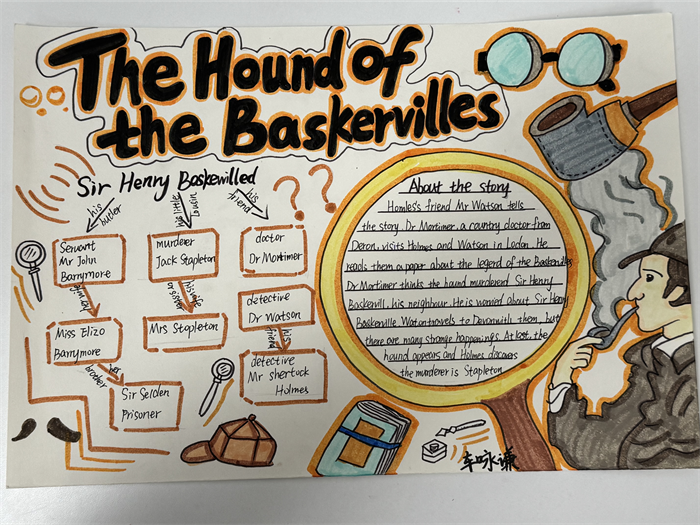 The Hound of
the Baskervilles
Sir Henry Baskewilled
his butler
his little cousin
his friend
Servant
Mr John
Barrymore
murderer
Jack Stapleton
doctor
Dr Mortimer
his wife
or sister
Miss Elizo
Barrymore
Mrs Stapleton
detective
Dr Watson
his
friend
her
brother
Sir Selden
Prisoner
detective
Mr sherlock
Holmes
About the story
Homles's friend Mr Watson tells
the story. Dr Mortimer, a country doctor from
Deron, visits Holmes and Watson in Lodon. He
reads them a paper about the legend of the Baskervilles
Dr Mortimer thinks the hound murdererd Sir Henry
Baskervill, his neighbour. He is worried about Sir Henry
Baskerville. Watson travels to Devonwith them, but
there are many strange happenings. At last, the
hound appears and Holmes
the murderer is Stapleton
车咏谦